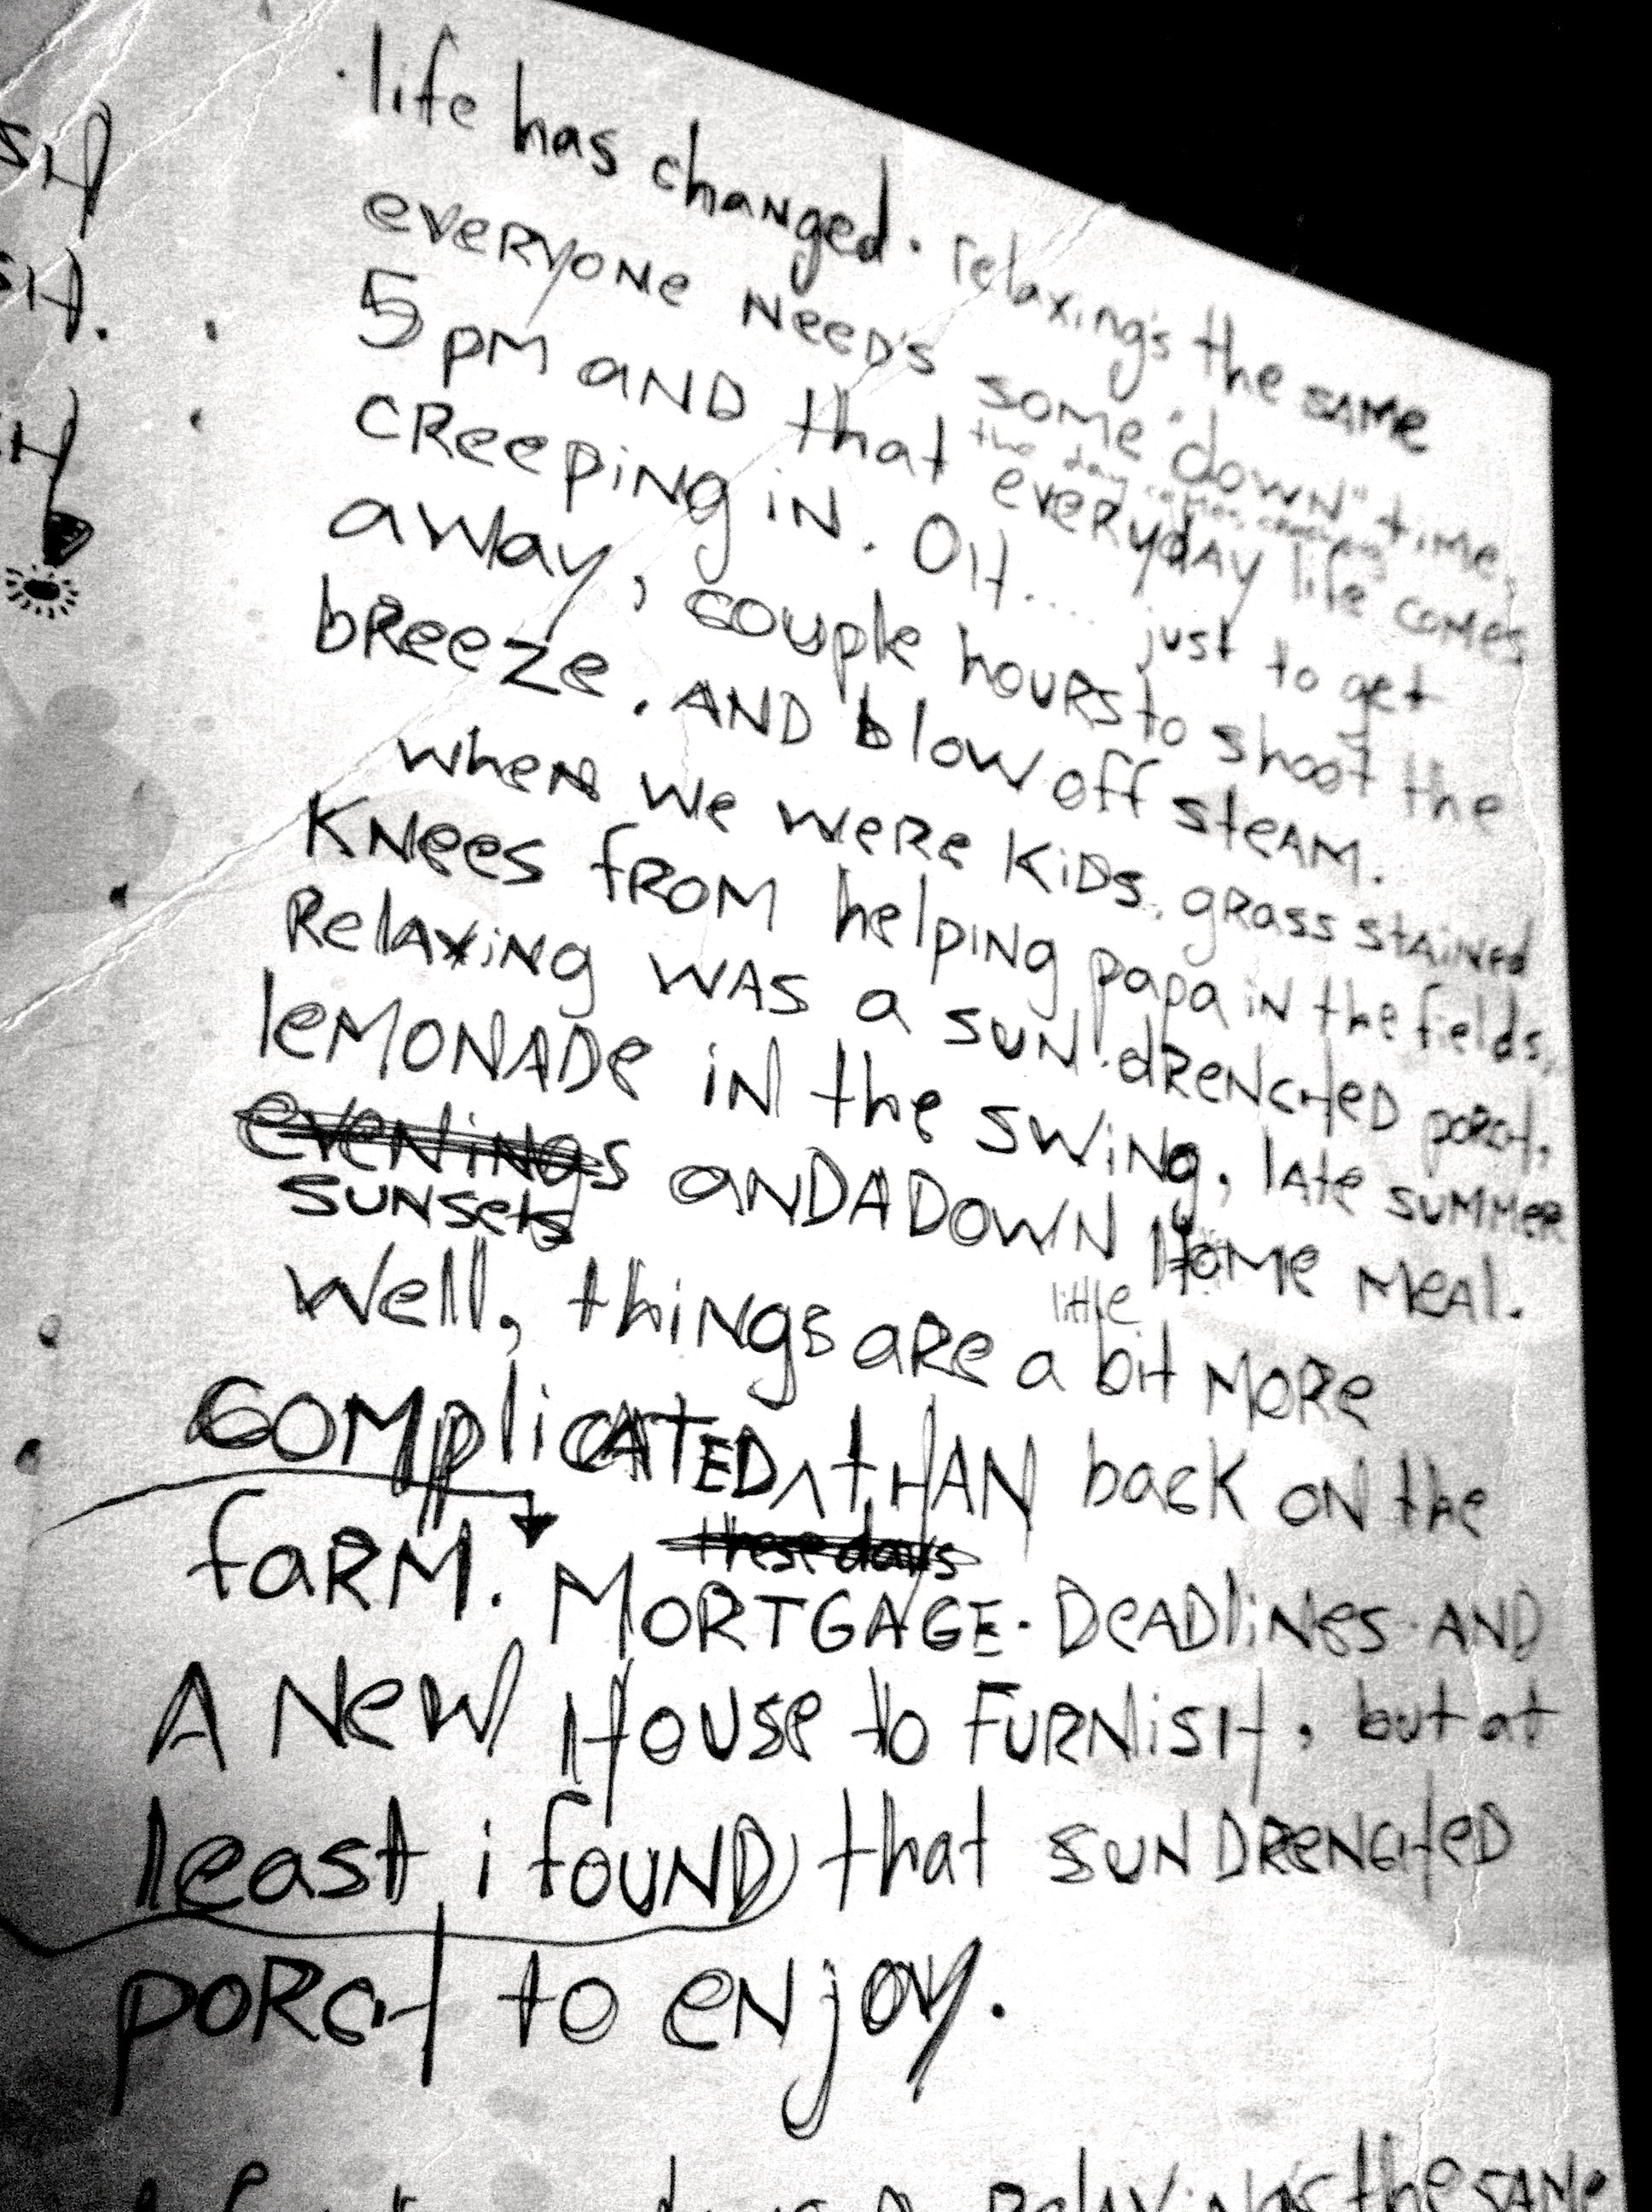 life has changed. relaxing's the same
everyone need's some "down" time,
5 pm and that everyday life comes
the day
creeping in. OH.... just to get
away, couple hours to shoot the
breeze. AND blow off steam.
when we were kids, grass stained
knees from helping papa in the fields,
Relaxing was a sun drenched porch,
lemonade in the swing, late summer
evenings and a down home meal.
sunsets
little
Well, things are a bit more
complicated ^ than back on the
these days
farm. Mortgage. Deadlines AND
A New House to FURNISH, but at
least i found that sun drenched
porch to enjoy.
relaxing's the same